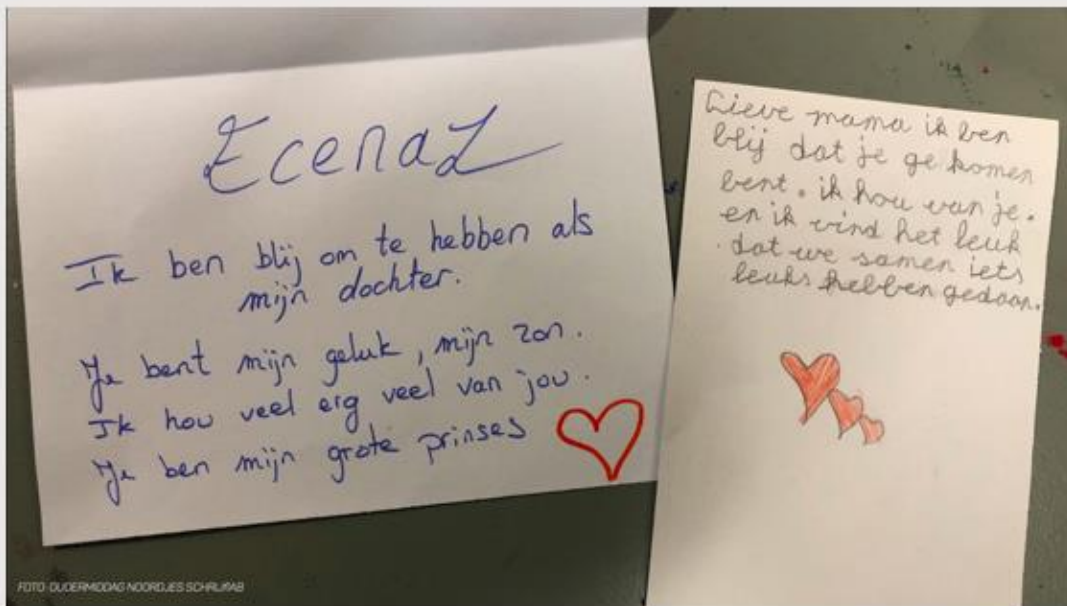 Ecenaz
Ik ben blij om te hebben als
mijn dochter.
Je bent mijn geluk, mijn zon.
Ik hou veel erg veel van jou.
Je ben mijn grote prinses
Lieve mama ik ben
blij dat je ge komen
bent. ik hou van je.
en ik vind het leuk
dat we samen iets
leuks hebben gedaan.
FOTO: OUDERMIDDAG NOORDJES SCHRIJFLAB